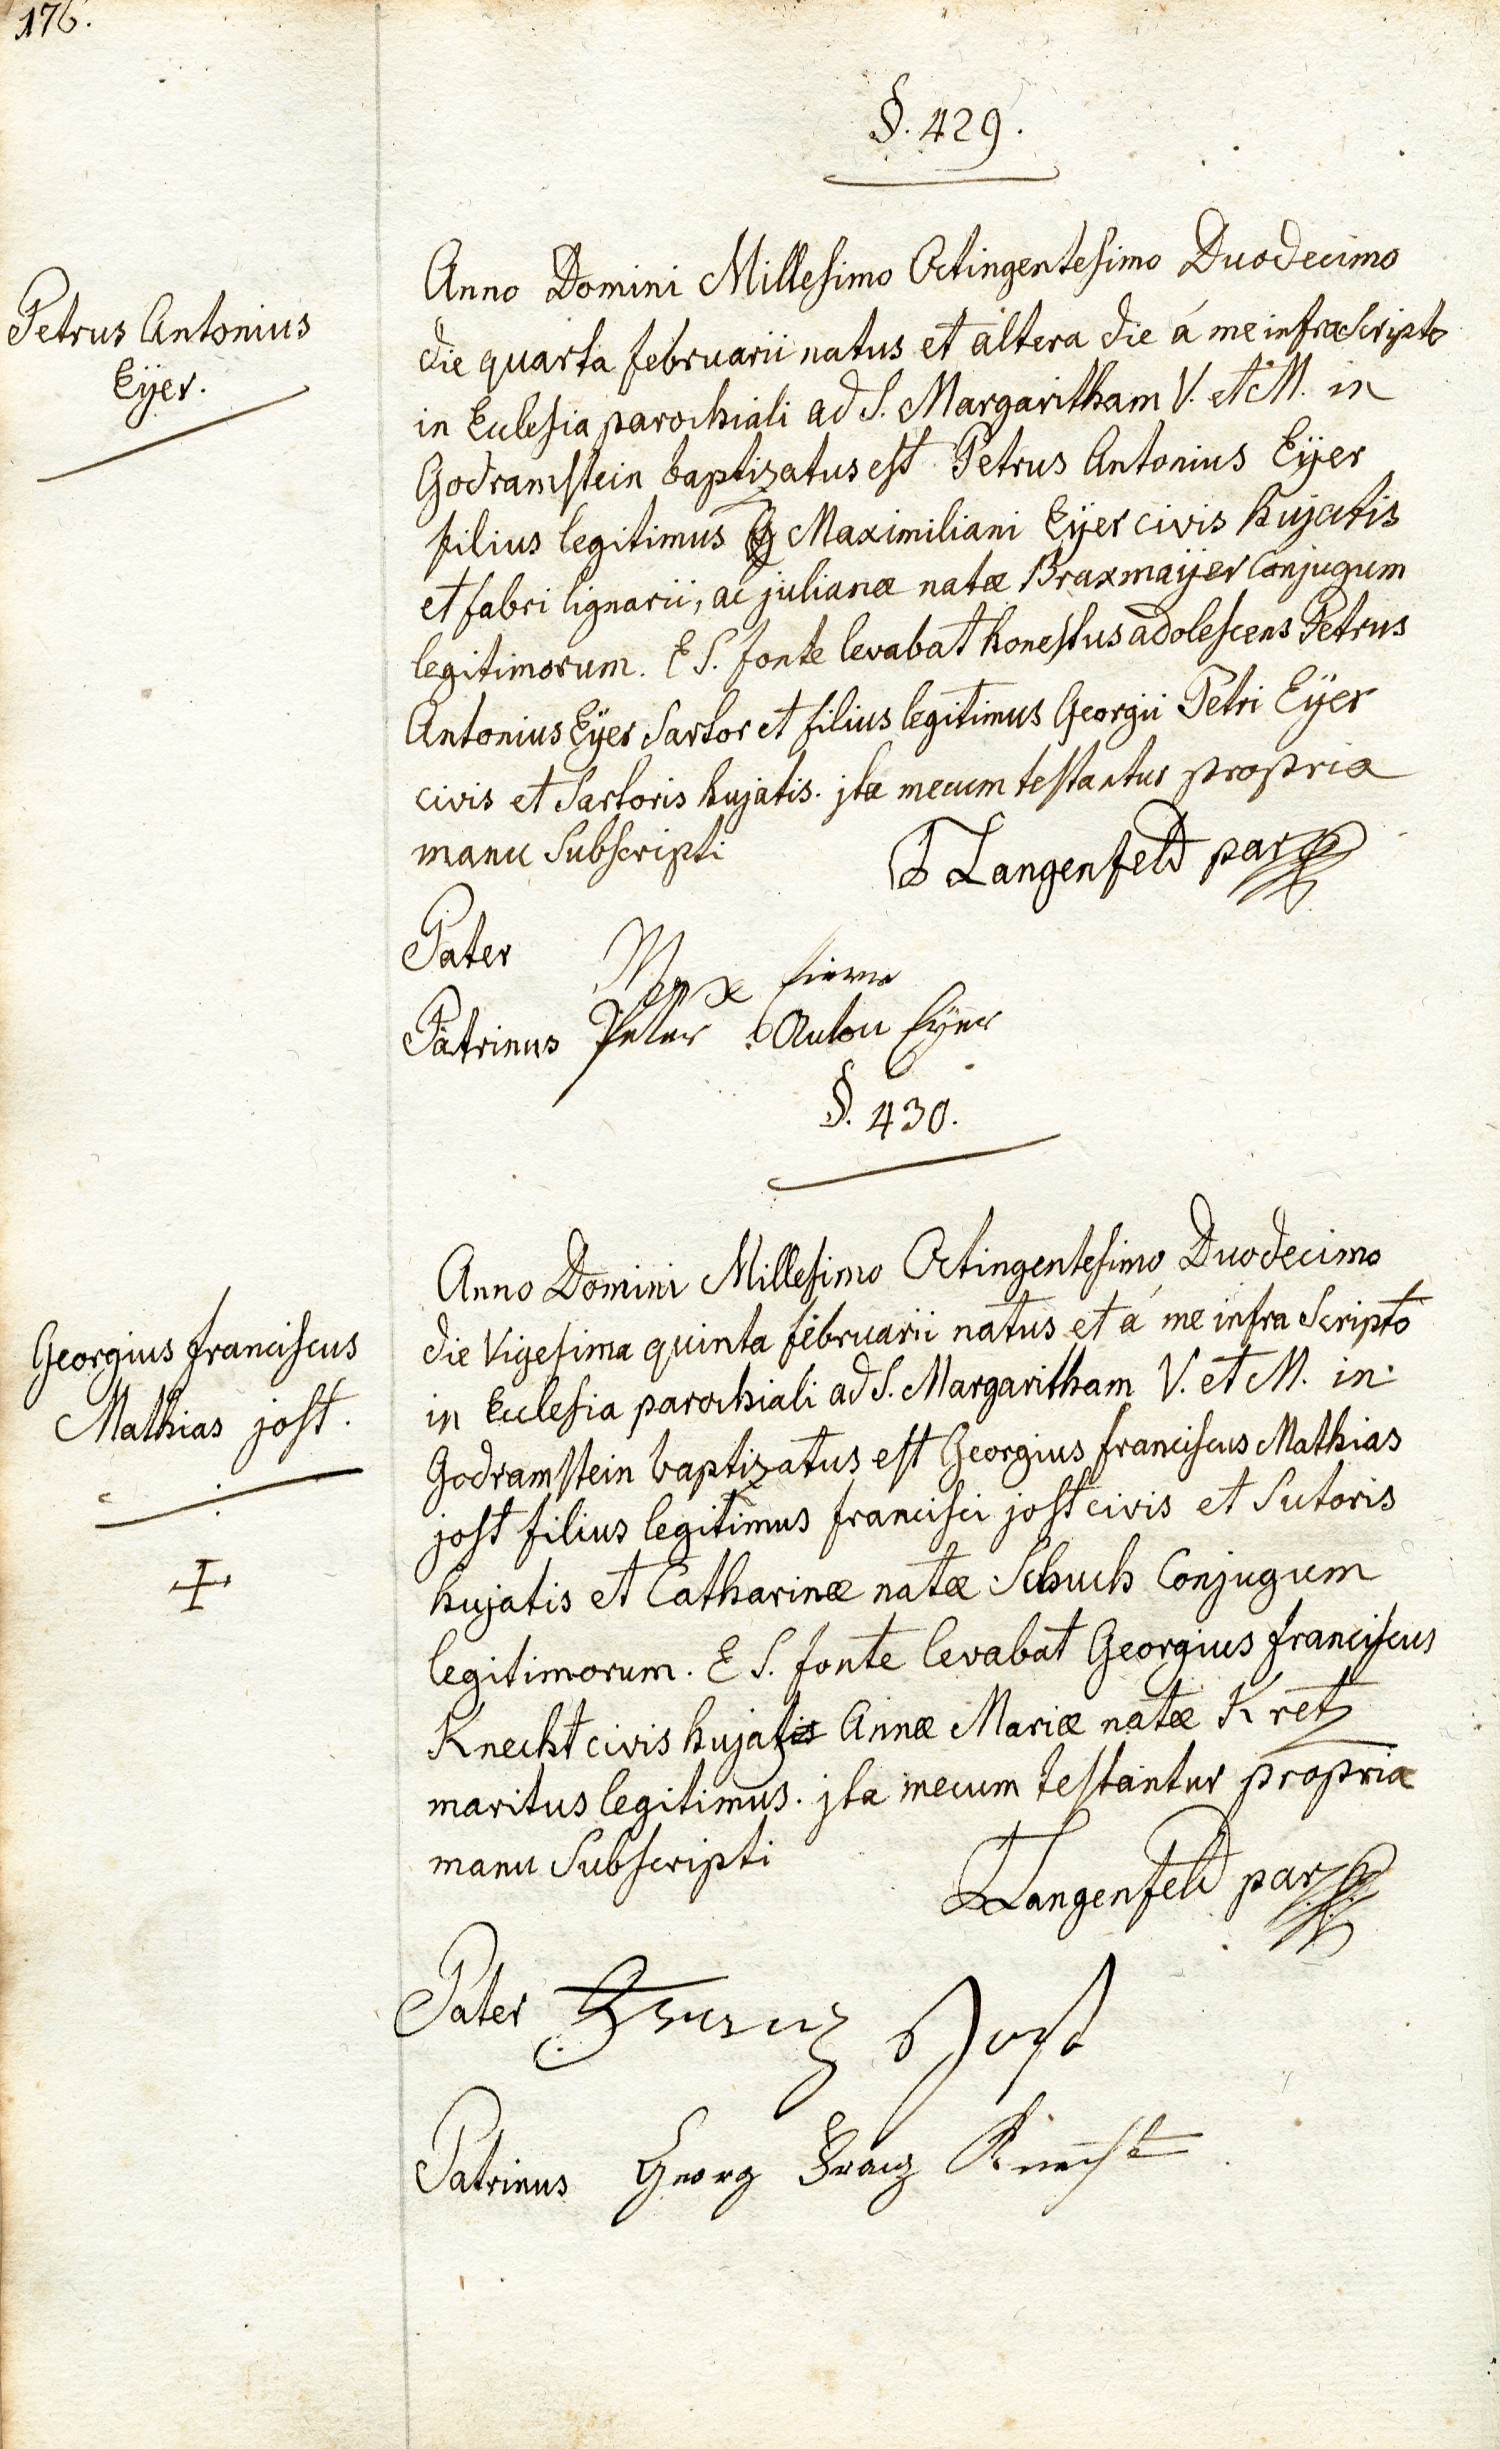 176.
§. 429.
Petrus Antonius
Eÿer.
Anno Domini Millesimo Octingentesimo Duodecimo
die quarta februarii natus et altera die á me infrascripto
in Eclesia parochiali ad S. Margaritham V. et M. in
Godramstein baptizatus est Petrus Antonius Eÿer
filius legitimus Maximiliani Eÿer civis hujatis
et fabri lignarii, ac julianæ natæ Braxmaÿer Conjugum
legitimorum. E S. fonte levabat honestus adolescens Petrus
Antonius Eÿer Sartor et filius legitimus Georgii Petri Eÿer
civis et Sartoris hujatis. jta mecum testantur propria
manu Subscripti
Langenfeld par
Pater Max
Patrinus Peter Anton Eÿer
§. 430.
Georgius franciscus
Mathias jost.
Anno Domini Millesimo Octingentesimo Duodecimo
die Vigesima quinta februarii natus et á me infra Scripto
in Eclesia parochiali ad S. Margaritham V. et M. in
Godramstein baptizatus est Georgius franciscus Mathias
jost filius legitimus francisci jost civis et Sutoris
hujatis et Catharinæ natæ Schuch Conjugum
legitimorum. E S. fonte levabat Georgius franciscus
Knecht civis hujatis Annæ Mariæ natæ Kretz
maritus legitimus. jta mecum testantur propria
manu Subscripti
Langenfeld par
Pater Franz Jost
Patrinus Georg Franz Knecht